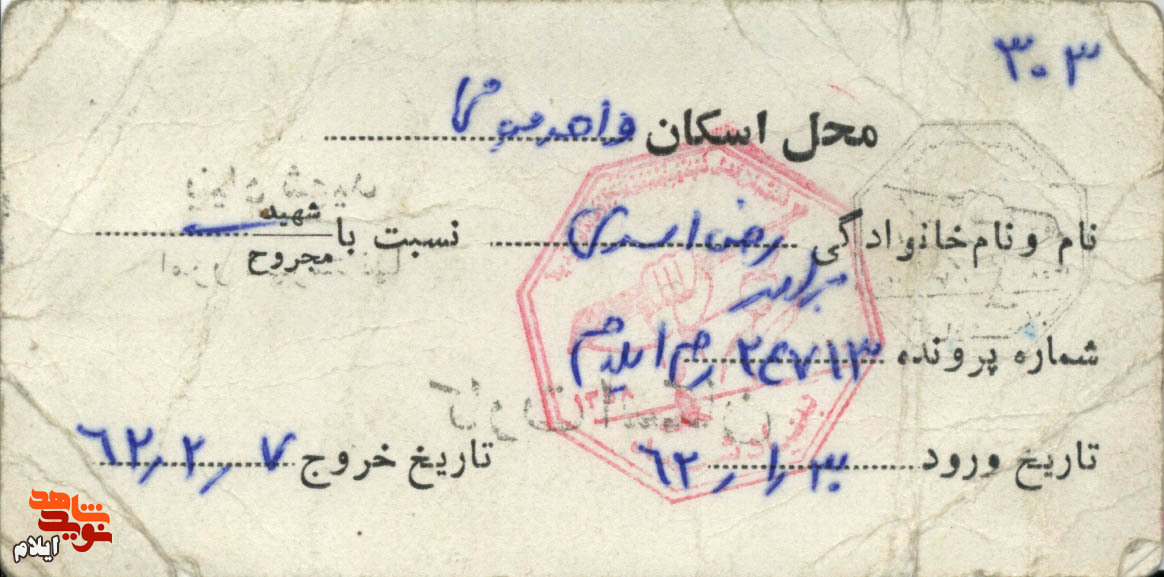 ۳۰۳
محل اسکان واحد
نام و نام خانوادگی رضا اسدی نسبت با شهید
مجروح
برادر
شماره پرونده ۲۴۷۱۳ ایلام
تاریخ ورود ۶۲٫۱٫۳۰ تاریخ خروج ۶۲٫۲٫۷
شاهد
نوید
ایلام